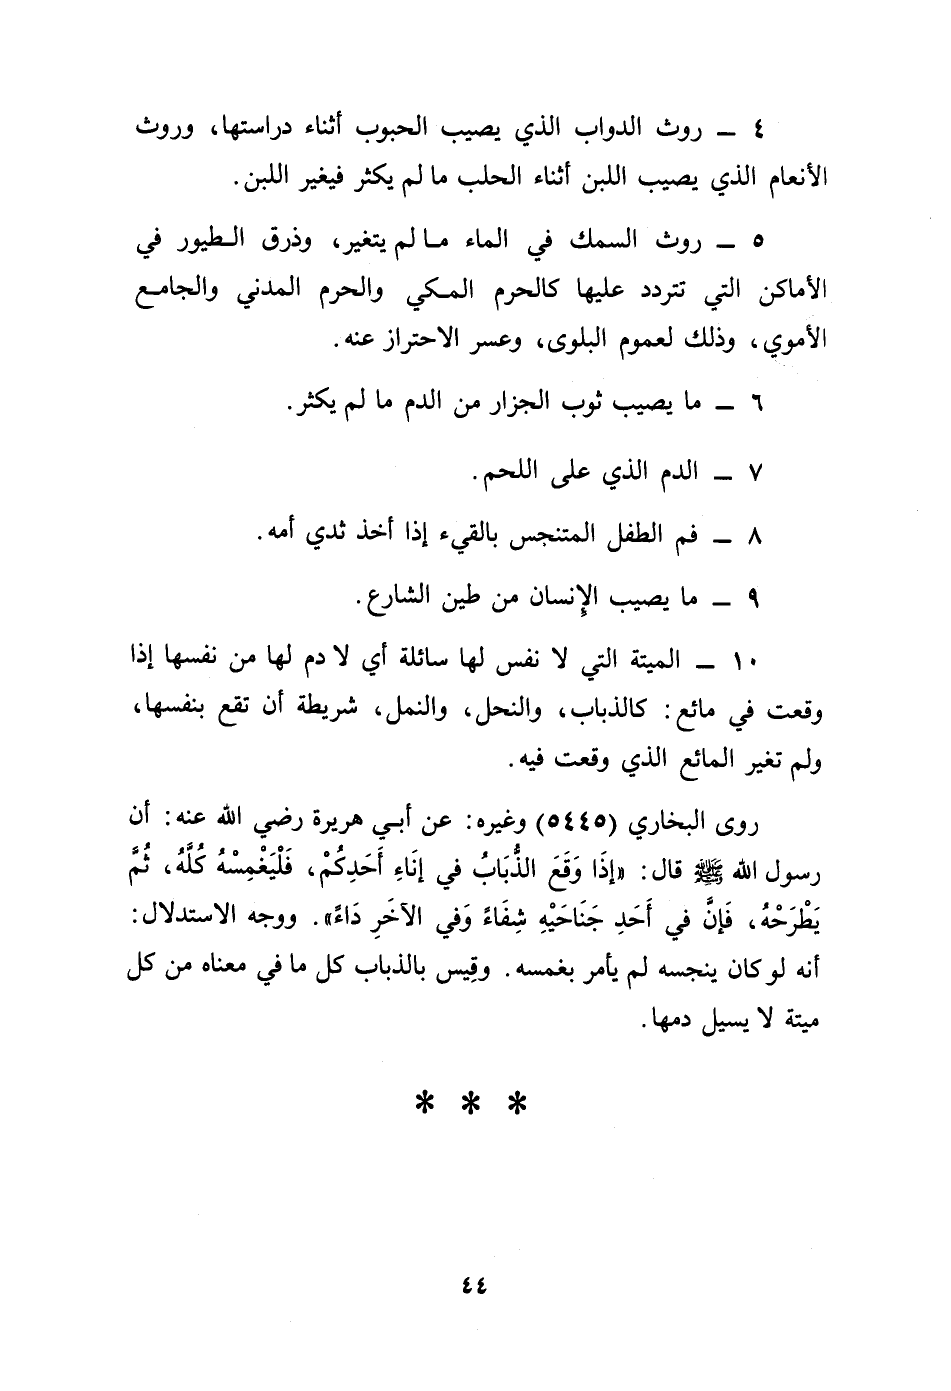 ٤ ــ روث الدواب الذي يصيب الحبوب أثناء دراستها، وروث
الأنعام الذي يصيب اللبن أثناء الحلب ما لم يكثر فيغير اللبن.
٥ ــ روث السمك في الماء ما لم يتغير، وذرق الطيور في
الأماكن التي تتردد عليها كالحرم المكي والحرم المدني والجامع
الأموي، وذلك لعموم البلوى، وعسر الاحتراز عنه.
٦ ــ ما يصيب ثوب الجزار من الدم ما لم يكثر.
٧ ــ الدم الذي على اللحم.
٨ ــ فم الطفل المتنجس بالقيء إذا أخذ ثدي أمه.
٩ ــ ما يصيب الإنسان من طين الشارع.
١٠ ــ الميتة التي لا نفس لها سائلة أي لا دم لها من نفسها إذا
وقعت في مائع: كالذباب، والنحل، والنمل، شريطة أن تقع بنفسها،
ولم تغير المائع الذي وقعت فيه.
روى البخاري (٥٤٤٥) وغيره: عن أبي هريرة رضي الله عنه: أن
رسول الله ﷺ قال: «إذَا وَقَعَ الذُّبَابُ في إنَاءِ أَحَدِكُمْ، فَلْيَغْمِسْهُ كُلَّهُ، ثُمَّ
يَطْرَحْهُ، فَإنَّ في أَحَدِ جَنَاحَيْهِ شِفَاءً وَفي الآخَرِ دَاءً». ووجه الاستدلال:
أنه لو كان ينجسه لم يأمر بغمسه. وقِيس بالذباب كل ما في معناه من كل
ميتة لا يسيل دمها.
* * *
٤٤